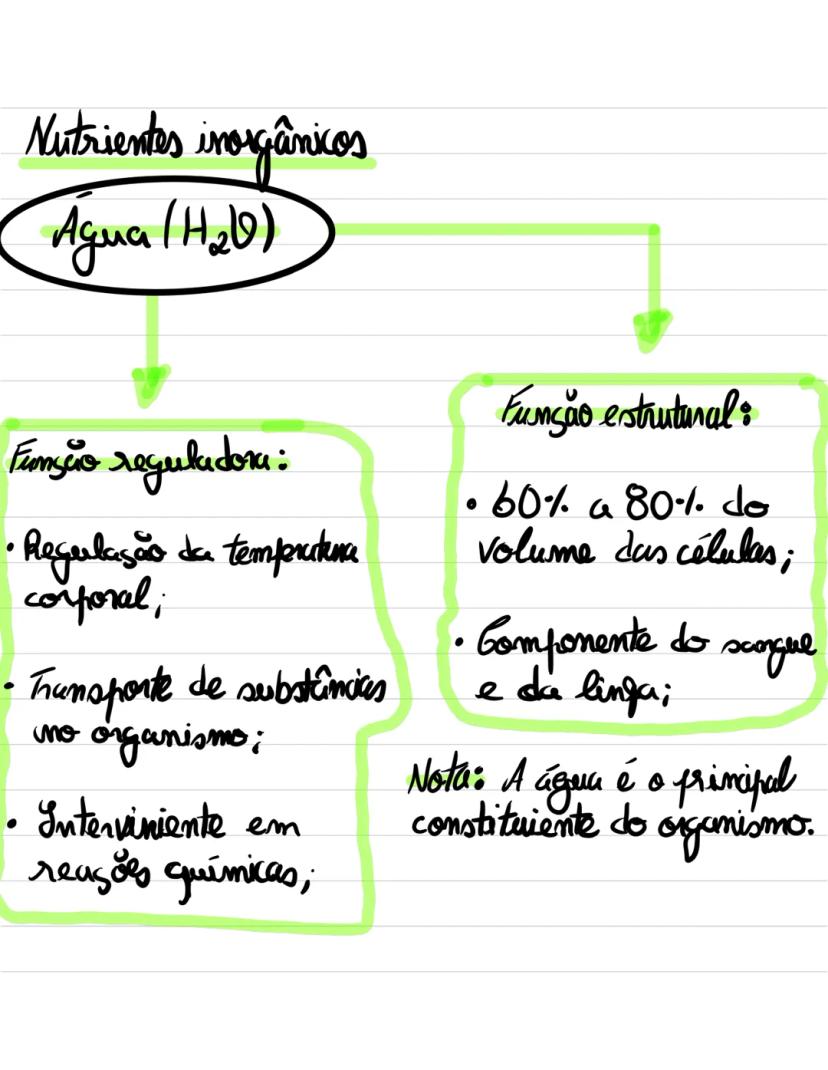 Nutrientes inorgânicos
Água (H₂O)
Função reguladora:
• Regulação da temperatura
corporal;
• Transporte de substâncias
no organismo;
• Interviniente em
reações químicas;
Função estrutural:
• 60% a 80% do
volume das células;
• Componente do sangue
e da linfa;
Nota: A água é o principal
constituiente do organismo.